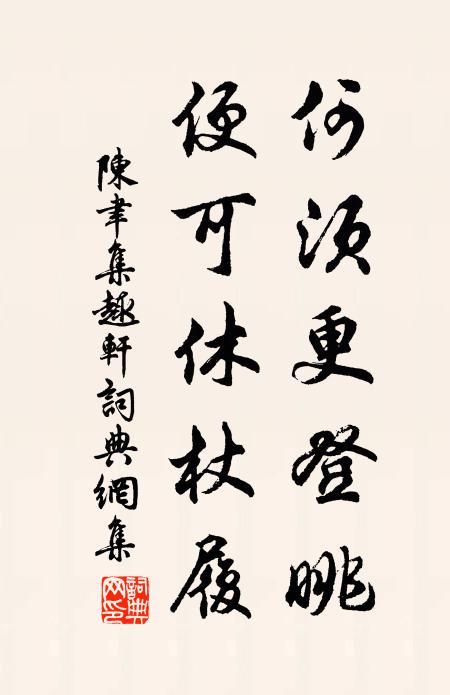 何須更登眺
便可休杖履
陳聿集趣軒詞典網集
詞典网印